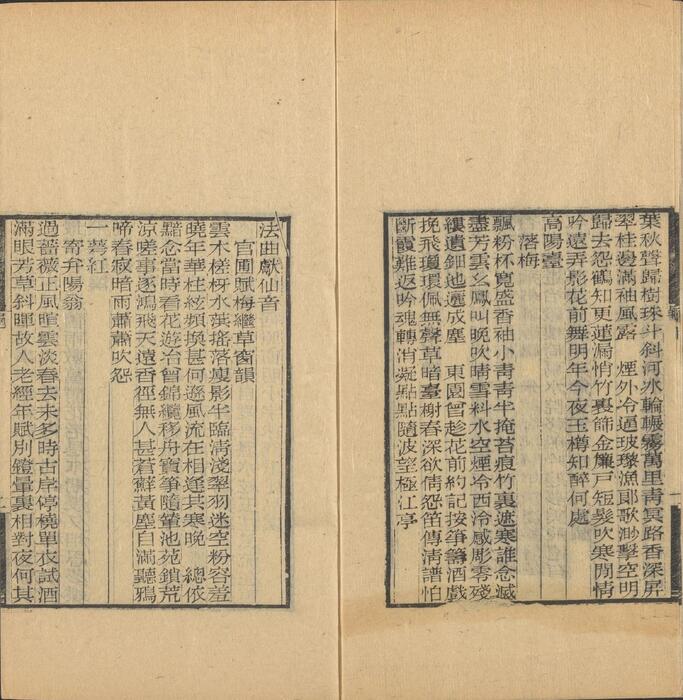 葉秋聲歸樹珠斗斜河氷輪輾霧萬里靑冥路香深屏
翠桂邊滿袖風露　煙外冷逼玻瓈漁郞歌渺擊空明
歸去怨鶴知更蓮漏悄竹裏篩金簾戸短髮吹寒閒情
吟遠弄影花前舞明年今夜玉樽知醉何處
高陽臺
落梅
飄粉杯寬盛香袖小靑靑半掩苔痕竹裏遮寒誰念減
盡芳雲幺鳳叫晚吹晴雪料水空煙冷西泠感彫零殘
縷遺鈿迤邐成塵　東園曾趁花前約記按箏籌酒戲
挽飛瓊環佩無聲草暗臺榭春深欲倩怨笛傳淸譜怕
斷霞難返吟魂轉消凝點點隨波望極江亭
法曲獻仙音
官圃賦梅繼草窗韻
雲木槎枒水葓搖落瘦影半臨淸淺翠羽迷空粉容羞
曉年華柱絃頻換甚何遜風流在相逢共寒晚　總依
黯念當時看花遊冶曾錦纜移舟寶箏隨輦池苑鎖荒
涼嗟事逐鴻飛天遠香徑無人甚蒼蘚黃塵自滿聽鴉
啼春寂暗雨蕭蕭吹怨
一萼紅
寄弁陽翁
過薔薇正風暄雲淡春去未多時古岸停橈單衣試酒
滿眼芳草斜暉故人老經年賦別鐙暈裏相對夜何其